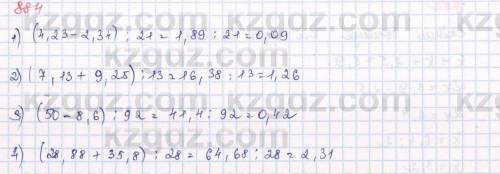 884
1) (4,23-2,34) : 21 = 1,89 : 21 = 0,09
2) (7,13 + 9,25) : 13 = 16,38 : 13 = 1,26
3) (50 - 8,6) : 92 = 41,4 : 92 = 0,42
4) (28,88 + 35,8) : 28 = 64,68 : 28 = 2,31